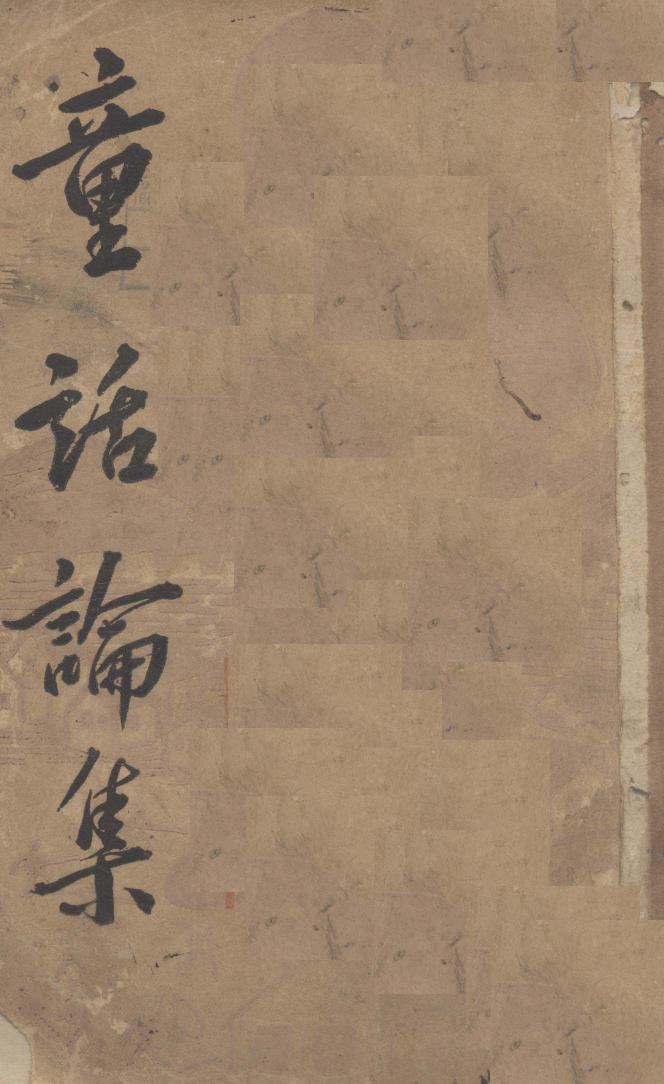 童話論集